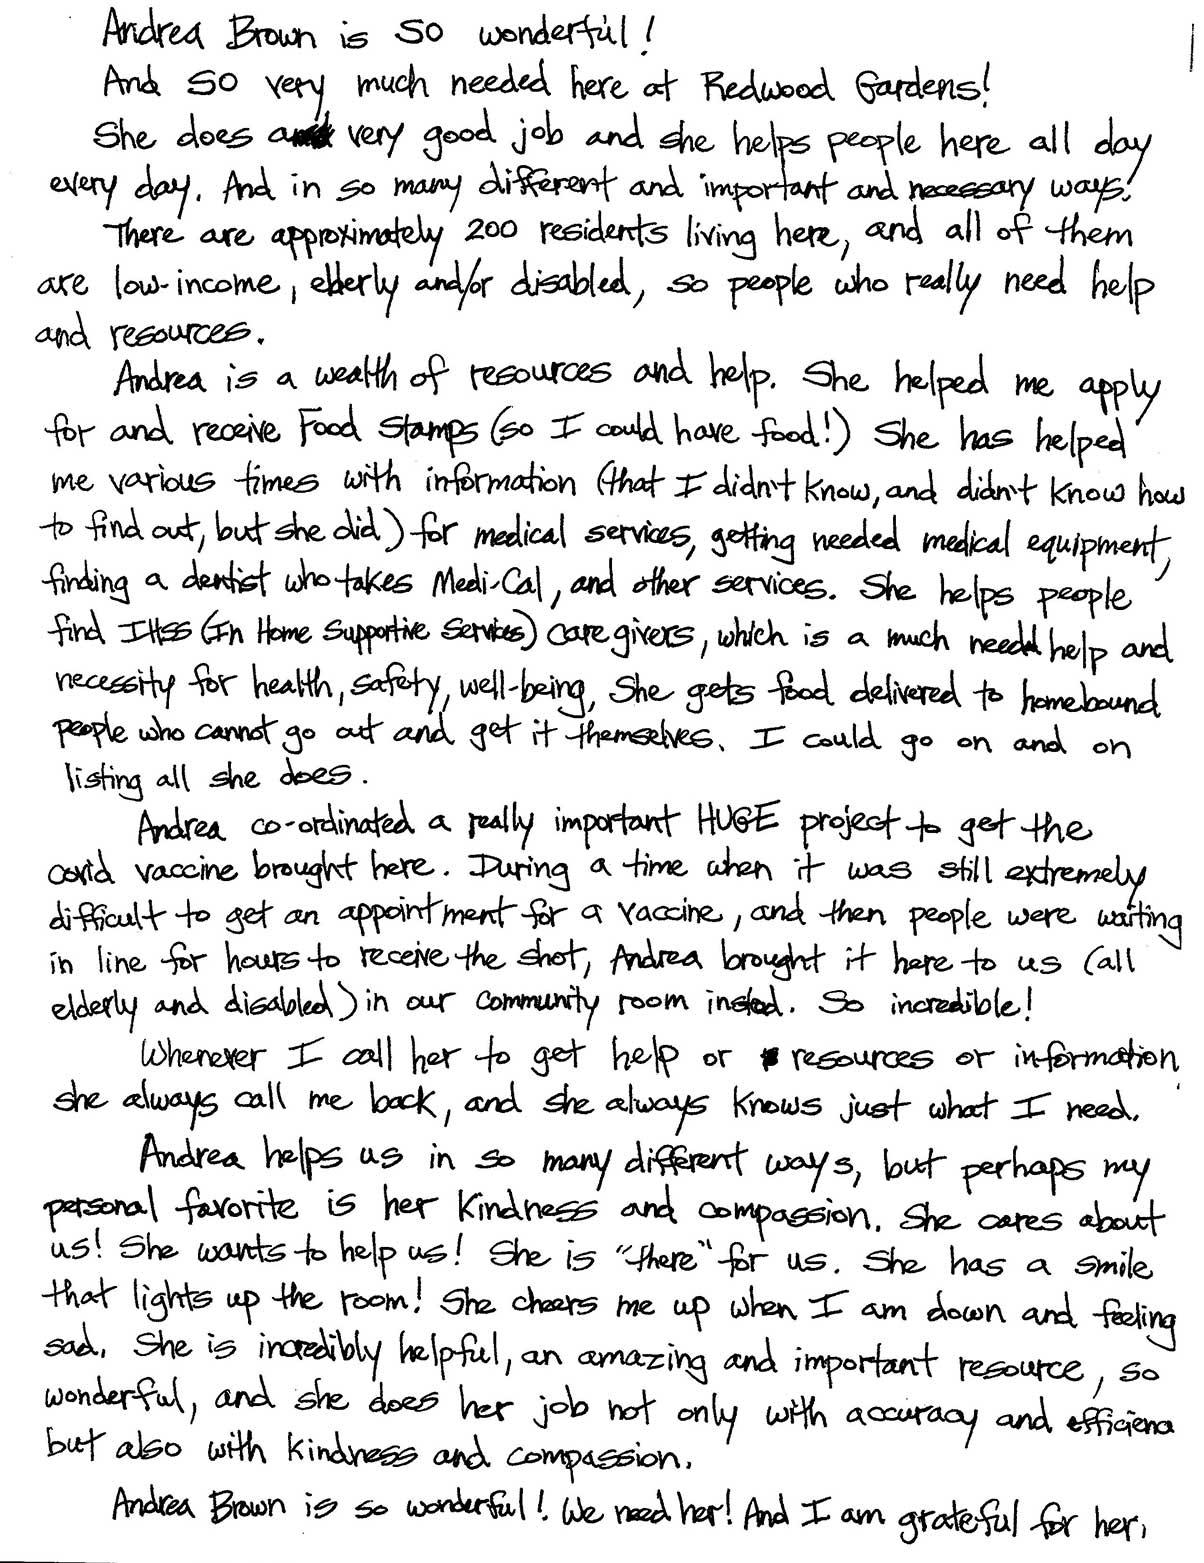 Andrea Brown is so wonderful!
And so very much needed here at Redwood Gardens!
She does a very good job and she helps people here all day
every day. And in so many different and important and necessary ways.
There are approximately 200 residents living here, and all of them
are low-income, elderly and/or disabled, so people who really need help
and resources.
Andrea is a wealth of resources and help. She helped me apply
for and receive Food Stamps (so I could have food!) She has helped
me various times with information (that I didn't know, and didn't know how
to find out, but she did) for medical services, getting needed medical equipment,
finding a dentist who takes Medi-Cal, and other services. She helps people
find IHSS (In Home Supportive Services) care givers, which is a much needed help and
necessity for health, safety, well-being. She gets food delivered to homebound
people who cannot go out and get it themselves. I could go on and on
listing all she does.
Andrea co-ordinated a really important HUGE project to get the
covid vaccine brought here. During a time when it was still extremely
difficult to get an appointment for a vaccine, and then people were waiting
in line for hours to receive the shot, Andrea brought it here to us (all
elderly and disabled) in our community room instead. So incredible!
Whenever I call her to get help or resources or information
she always call me back, and she always knows just what I need.
Andrea helps us in so many different ways, but perhaps my
personal favorite is her kindness and compassion. She cares about
us! She wants to help us! She is "there" for us. She has a smile
that lights up the room! She cheers me up when I am down and feeling
sad. She is incredibly helpful, an amazing and important resource, so
wonderful, and she does her job not only with accuracy and
but also with kindness and compassion.
Andrea Brown is so wonderful! We need her! And I am grateful for her.